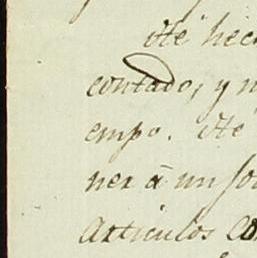 He hec
contado, y m
empo. He
ner á un so
Articulos Co